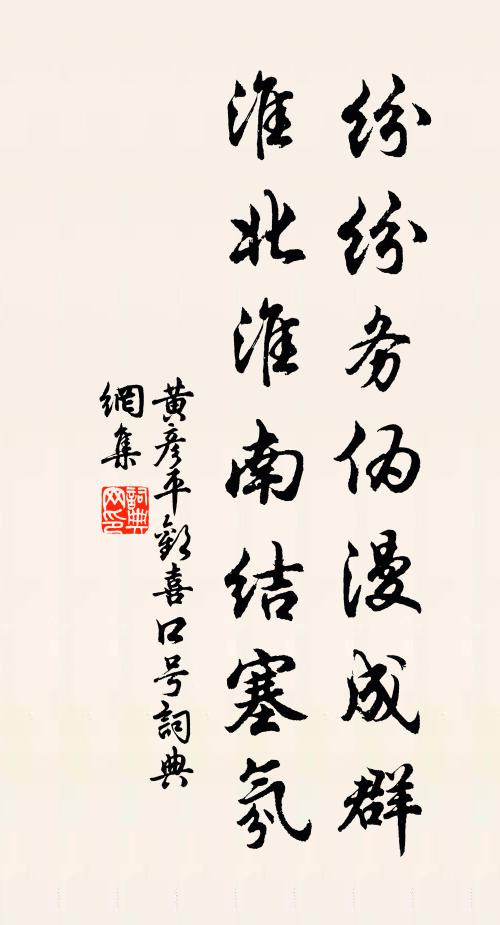 纷纷务伪漫成群
淮北淮南结塞氛
黄彦平歡喜口号詞典
網集
詞典网印